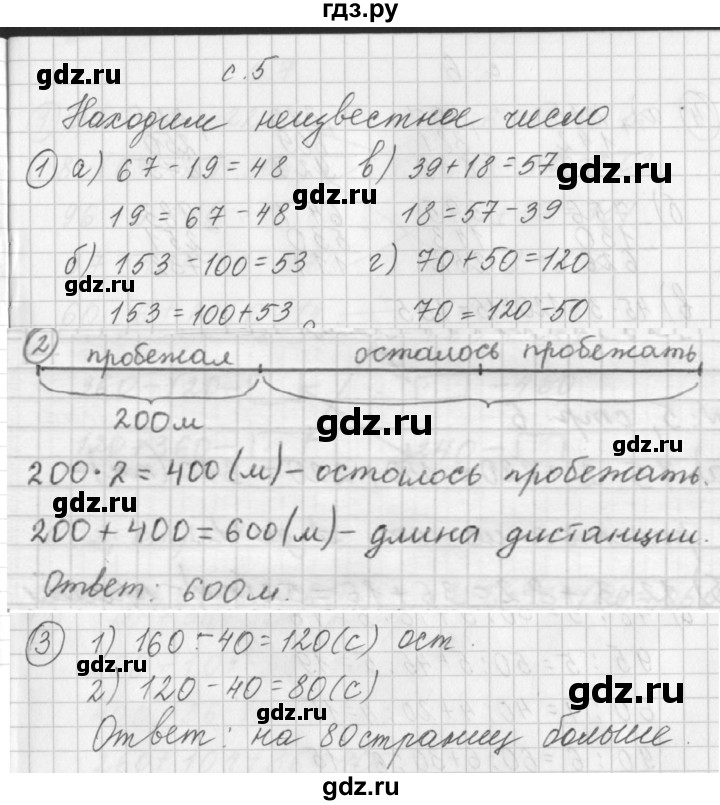 гдз.ру
с. 5
Находим неизвестное число
1 а) 67 - 19 = 48 в) 39 + 18 = 57
19 = 67 - 48 18 = 57 - 39
б) 153 - 100 = 53 г) 70 + 50 = 120
153 = 100 + 53 70 = 120 - 50
2 пробежал осталось пробежать
200 м
200 · 2 = 400 (м) - осталось пробежать.
200 + 400 = 600 (м) - длина дистанции.
Ответ: 600 м.
3 1) 160 - 40 = 120 (с) ост.
2) 120 - 40 = 80 (с)
Ответ: на 80 страниц больше.
gdz.ru
gdz.ru
gdz.ru
gdz.ru
gdz.ru
gdz.ru
gdz.ru
gdz.ru
gdz.ru
gdz.ru
gdz.ru
gdz.ru
gdz.ru